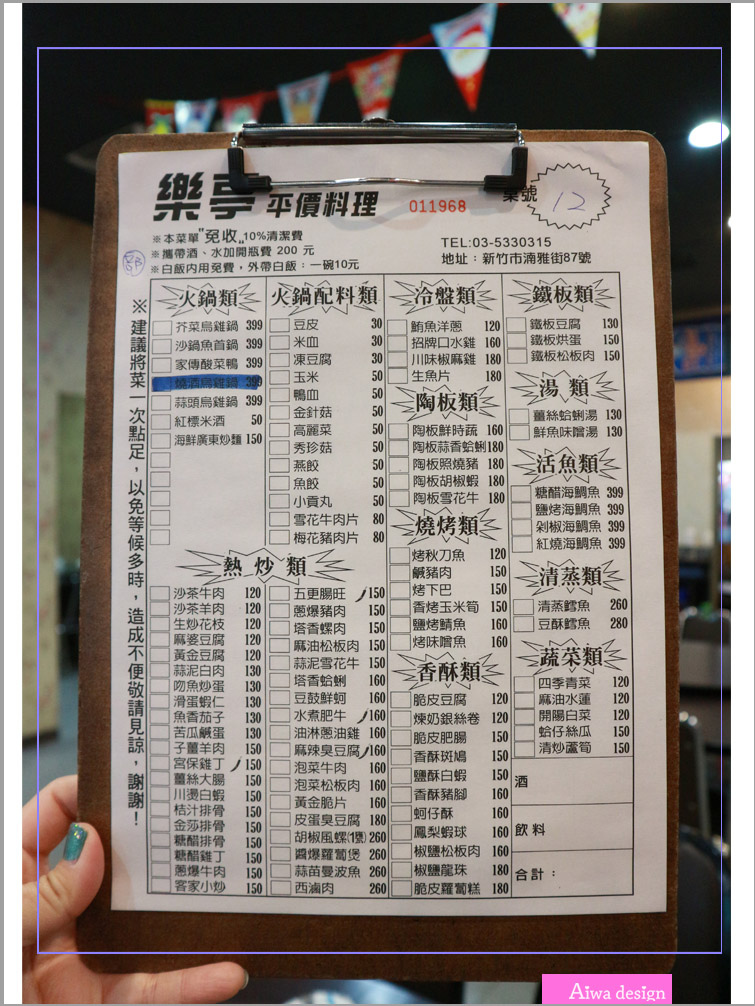 樂亭 平價料理
011968
桌號 12
※本菜單"免收"10%清潔費
※攜帶酒、水加開瓶費 200 元
※白飯內用免費，外帶白飯：一碗10元
TEL:03-5330315
地址：新竹市湳雅街87號
※建議將菜一次點足，以免等候多時，造成不便敬請見諒，謝謝！
火鍋類
芥菜烏雞鍋 399
沙鍋魚首鍋 399
家傳酸菜鴨 399
燒酒烏雞鍋 399
蒜頭烏雞鍋 399
紅標米酒 50
海鮮廣東炒麵 150
火鍋配料類
豆皮 30
米血 30
凍豆腐 30
玉米 50
鴨血 50
金針菇 50
高麗菜 50
秀珍菇 50
燕餃 50
魚餃 50
小貢丸 50
雪花牛肉片 80
梅花豬肉片 80
熱炒類
沙茶牛肉 120
沙茶羊肉 120
生炒花枝 120
麻婆豆腐 120
黃金豆腐 120
蒜泥白肉 130
吻魚炒蛋 130
滑蛋蝦仁 130
魚香茄子 130
苦瓜鹹蛋 130
子薑羊肉 150
宮保雞丁 150
薑絲大腸 150
川燙白蝦 150
桔汁排骨 150
金莎排骨 150
糖醋排骨 150
糖醋雞丁 150
蔥爆牛肉 150
客家小炒 150
五更腸旺 150
蔥爆豬肉 150
塔香螺肉 150
麻油松板肉 150
蒜泥雪花牛 150
塔香蛤蜊 160
豆鼓鮮蚵 160
水煮肥牛 160
油淋蔥油雞 160
麻辣臭豆腐 160
泡菜牛肉 160
泡菜松板肉 160
黃金脆片 160
皮蛋臭豆腐 180
胡椒風螺(1隻) 260
醬爆蘿蔔煲 260
蒜苗曼波魚 260
西滷肉 260
冷盤類
鮪魚洋蔥 120
招牌口水雞 160
川味椒麻雞 180
生魚片 180
陶板類
陶板鮮時蔬 160
陶板蒜香蛤蜊 180
陶板照燒豬 180
陶板胡椒蝦 180
陶板雪花牛 180
燒烤類
烤秋刀魚 120
鹹豬肉 150
烤下巴 150
香烤玉米筍 150
鹽烤鯖魚 160
烤味噌魚 160
香酥類
脆皮豆腐 120
煉奶銀絲卷 120
脆皮肥腸 150
香酥斑鳩 150
鹽酥白蝦 150
香酥豬腳 150
蚵仔酥 150
鳳梨蝦球 150
椒鹽松板肉 150
椒鹽龍珠 180
脆皮蘿蔔糕 180
鐵板類
鐵板豆腐 130
鐵板烘蛋 150
鐵板松板肉 150
湯類
薑絲蛤蜊湯 130
鮮魚味噌湯 130
活魚類
糖醋海鯛魚 399
鹽烤海鯛魚 399
剁椒海鯛魚 399
紅燒海鯛魚 399
清蒸類
清蒸鱈魚 260
豆酥鱈魚 280
蔬菜類
四季青菜 120
麻油水蓮 120
開陽白菜 120
蛤仔絲瓜 150
清炒蘆筍 150
酒
飲料
合計：
Aiwa design